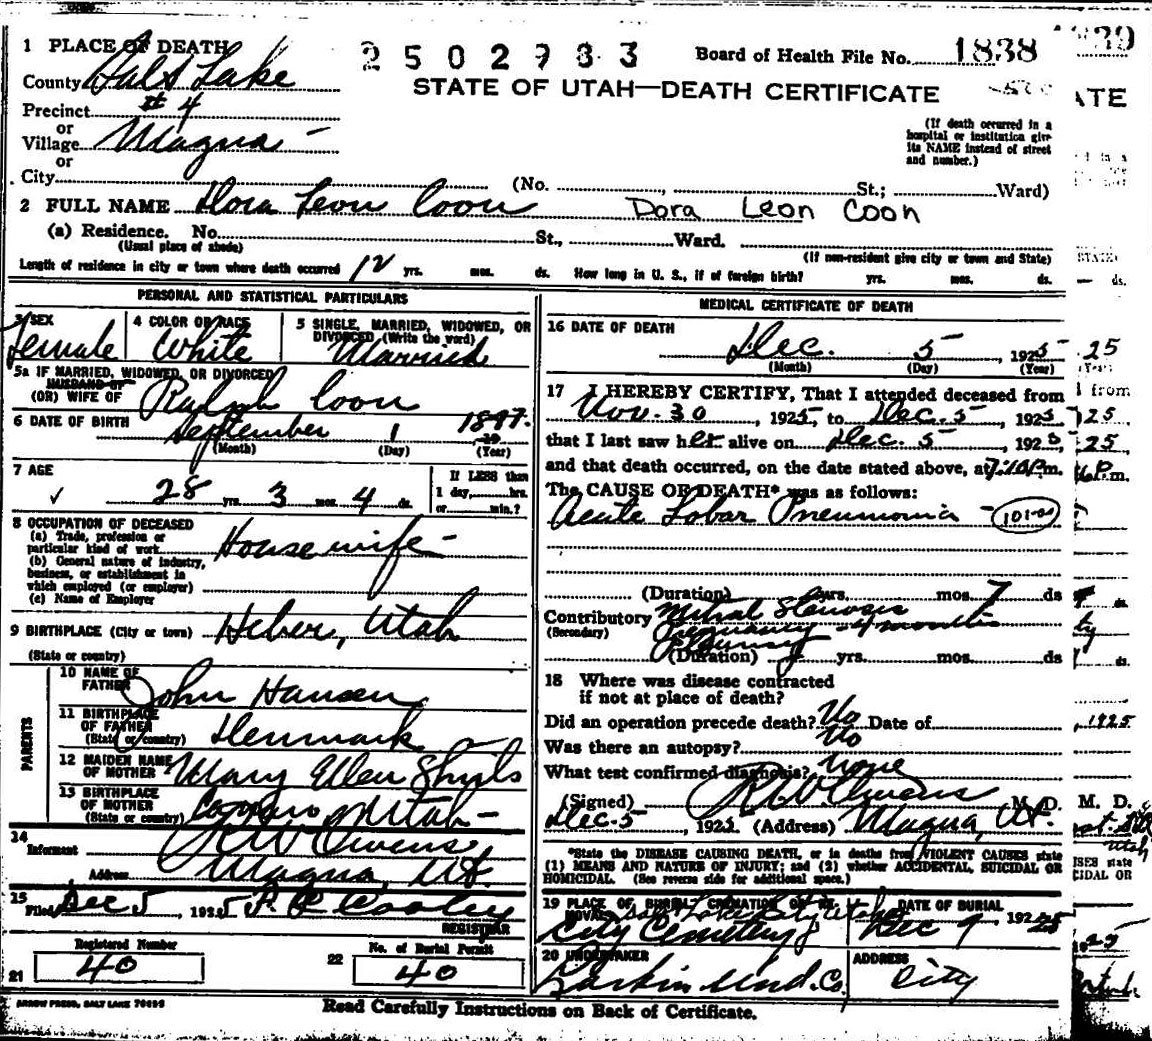 1 PLACE OF DEATH
2502783
Board of Health File No. 1838
County Salt Lake
STATE OF UTAH—DEATH CERTIFICATE
Precinct #4
or
Village Magna
or
(If death occurred in a
hospital or institution give
its NAME instead of street
and number.)
City (No. , St.; Ward)
2 FULL NAME Dora Leon Coon Dora Leon Coon
(a) Residence. No. St., Ward.
(Usual place of abode) (If non-resident give city or town and State)
Length of residence in city or town where death occurred 12 yrs. mos. ds. How long in U. S., if of foreign birth? yrs. mos. ds.
PERSONAL AND STATISTICAL PARTICULARS
3 SEX
Female
4 COLOR OR RACE
White
5 SINGLE, MARRIED, WIDOWED, OR
DIVORCED (Write the word)
Married
5a IF MARRIED, WIDOWED, OR DIVORCED
HUSBAND OF
(OR) WIFE OF Ralph Coon
6 DATE OF BIRTH September 1 1897
(Month) (Day) (Year)
7 AGE
✓ 28 yrs. 3 mos. 4 ds.
If LESS than
1 day, hrs.
or min.?
8 OCCUPATION OF DECEASED
(a) Trade, profession or
particular kind of work Housewife
(b) General nature of industry,
business, or establishment in
which employed (or employer)
(c) Name of Employer
9 BIRTHPLACE (City or town) Heber, Utah
(State or country)
PARENTS
10 NAME OF
FATHER John Hansen
11 BIRTHPLACE
OF FATHER
(State or country) Denmark
12 MAIDEN NAME
OF MOTHER Mary Ellen
13 BIRTHPLACE
OF MOTHER
(State or country) Utah
14
Informant R W Owens
Address Magna, Ut.
15
Filed Dec 5, 1925
REGISTRAR
Registered Number
21 40
No. of Burial Permit
22 40
MEDICAL CERTIFICATE OF DEATH
16 DATE OF DEATH
Dec. 5, 1925
(Month) (Day) (Year)
17 I HEREBY CERTIFY, That I attended deceased from
Nov. 30, 1925, to Dec. 5, 1925
that I last saw her alive on Dec. 5 1925
and that death occurred, on the date stated above, at 7:10 P.m.
The CAUSE OF DEATH* was as follows:
Acute Lobar Pneumonia
(Duration) yrs. mos. 7 ds
Contributory Mitral Stenosis
(Secondary) Pregnancy - 4 months
(Duration) yrs. mos. ds
18 Where was disease contracted
if not at place of death?
Did an operation precede death? No Date of
Was there an autopsy? No
What test confirmed diagnosis? None
(Signed) R W Owens M. D.
Dec. 5, 1925 (Address) Magna, Ut.
*State the DISEASE CAUSING DEATH, or in deaths from VIOLENT CAUSES state
(1) MEANS AND NATURE OF INJURY; and (2) whether ACCIDENTAL, SUICIDAL OR
HOMICIDAL. (See reverse side for additional space.)
19 PLACE OF BURIAL, CREMATION OR RE-
MOVAL Salt Lake City Utah
City Cemetery
DATE OF BURIAL
Dec 9 1925
20 UNDERTAKER
Larkin Und. Co.
ADDRESS
City
ARROW PRESS, SALT LAKE
Read Carefully Instructions on Back of Certificate.